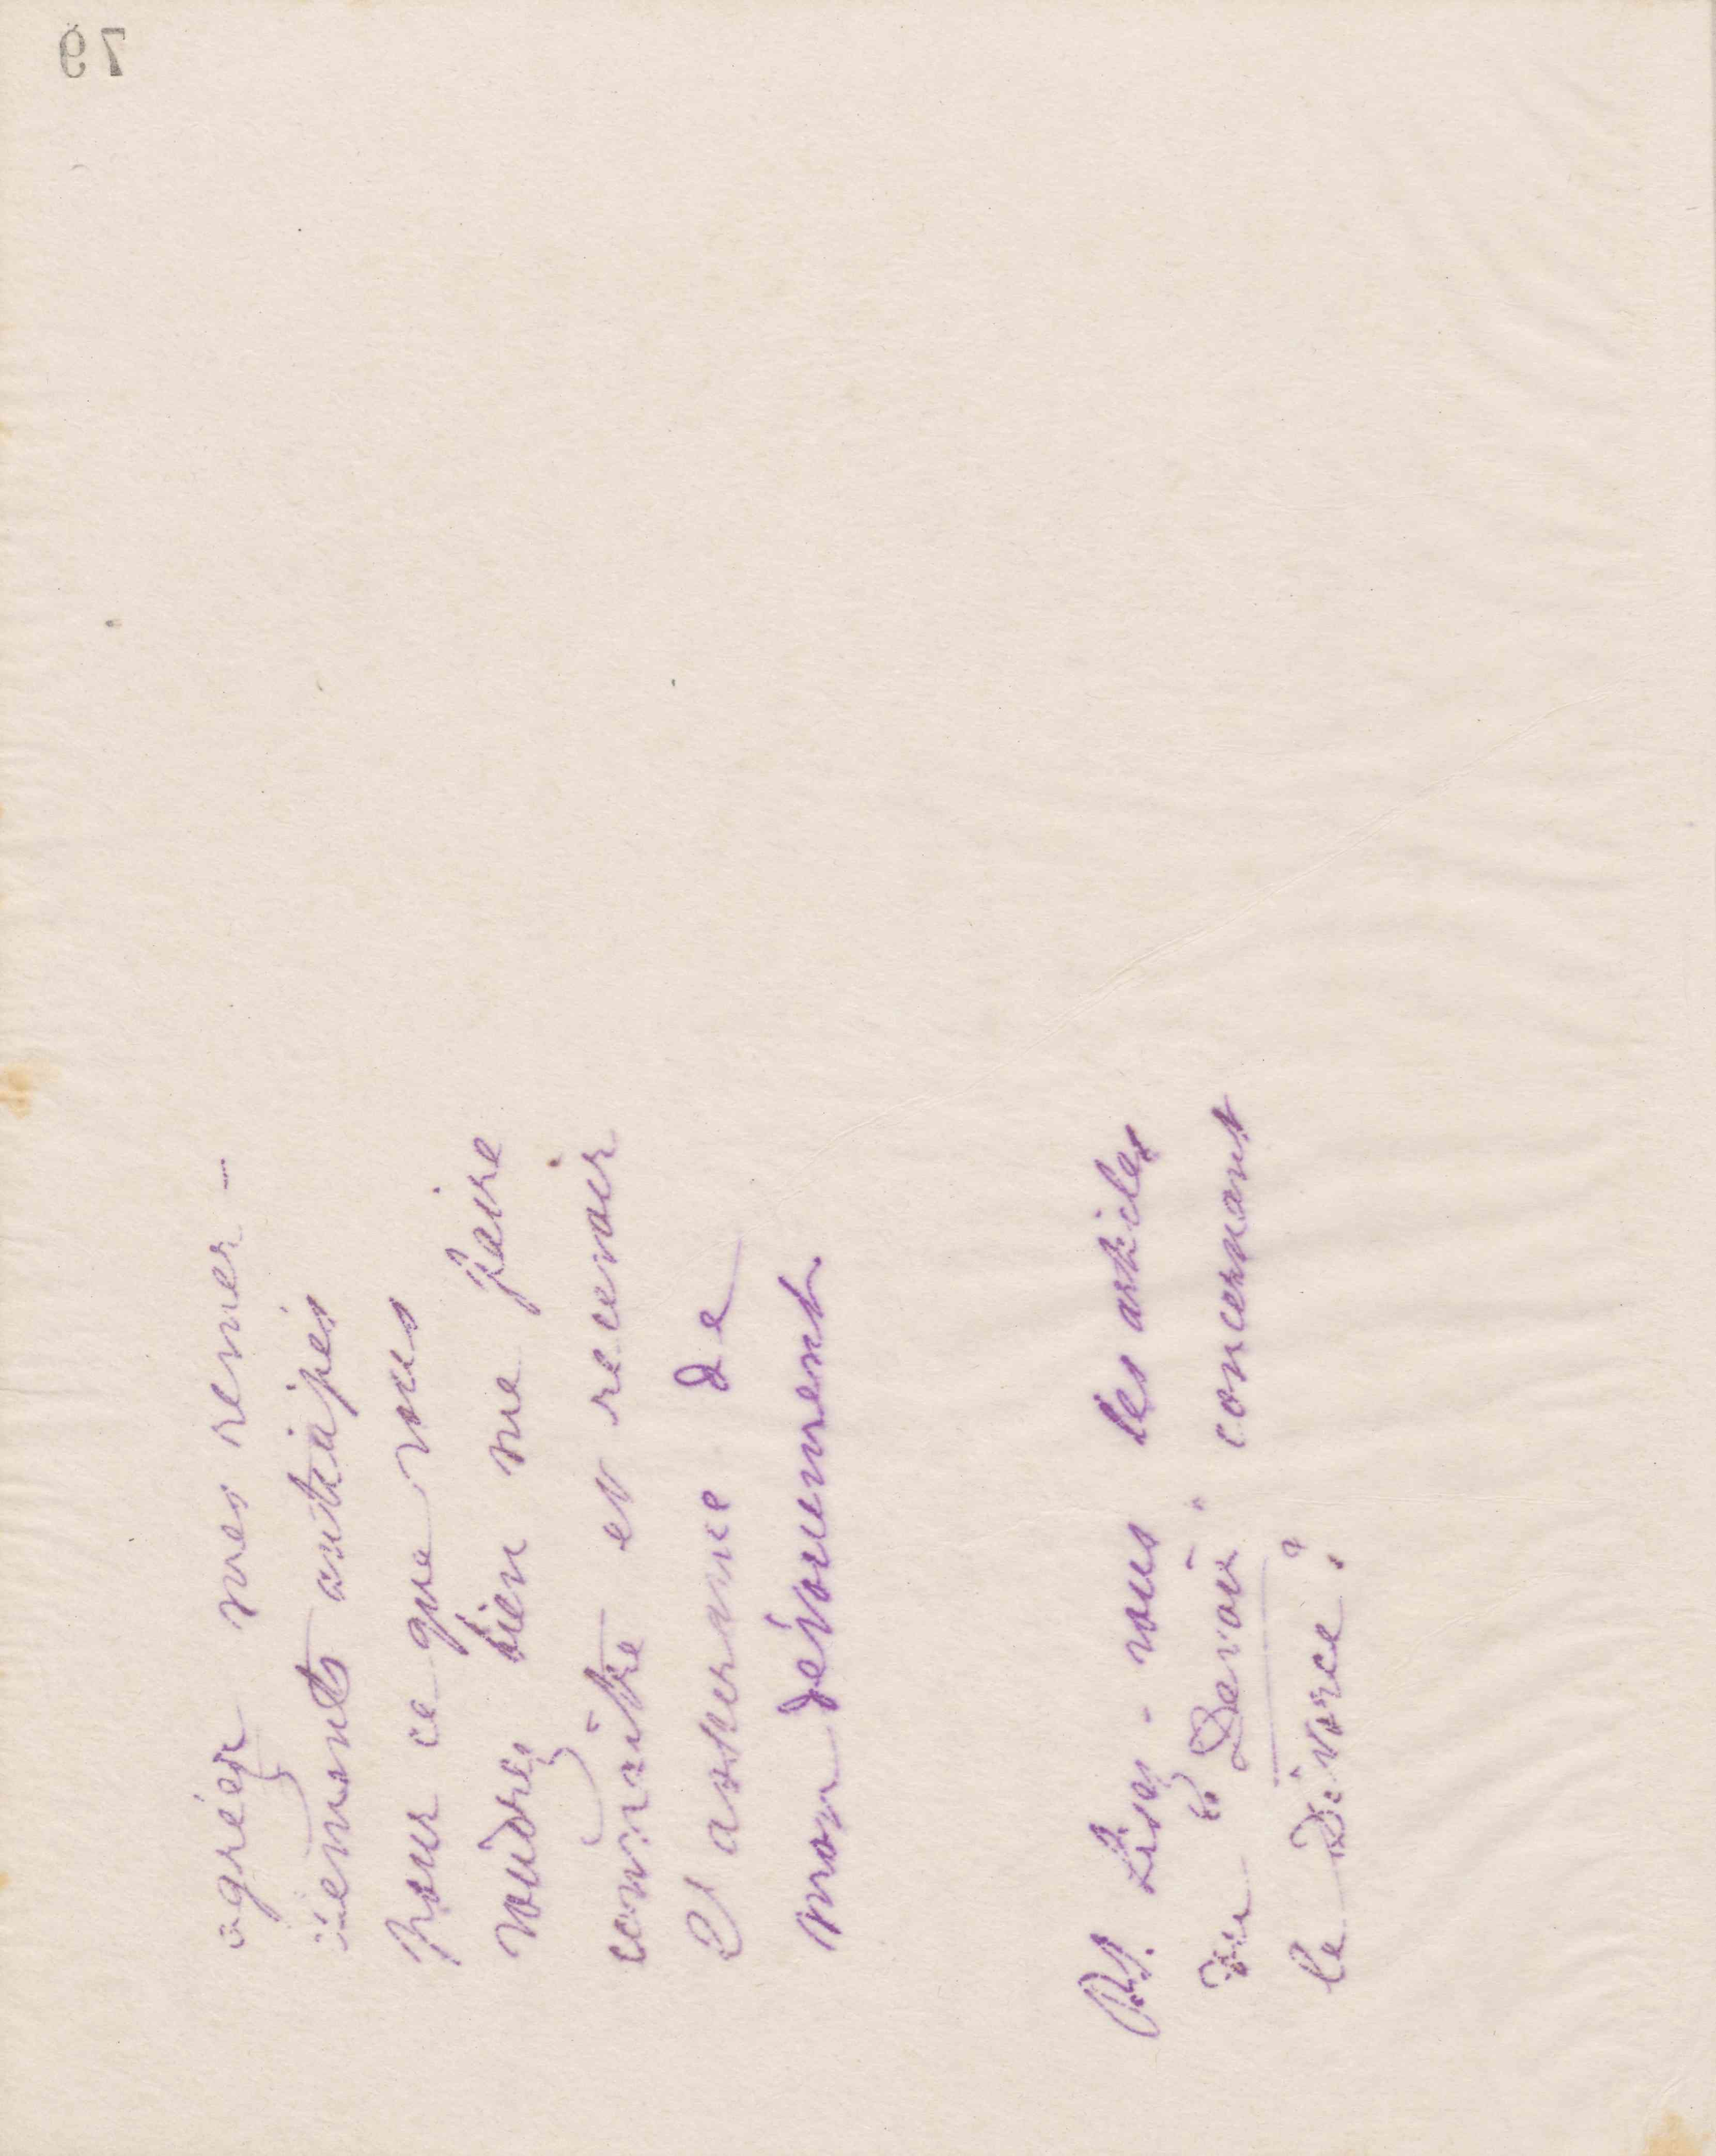 agréez mes remer-
ciements anticipés
pour ce que vous
voudrez bien me faire
connaître et recevoir
l'assurance de
mon dévouement.
P.S. Lisez-vous les articles
du "Devoir" concernant
le Divorce?
79